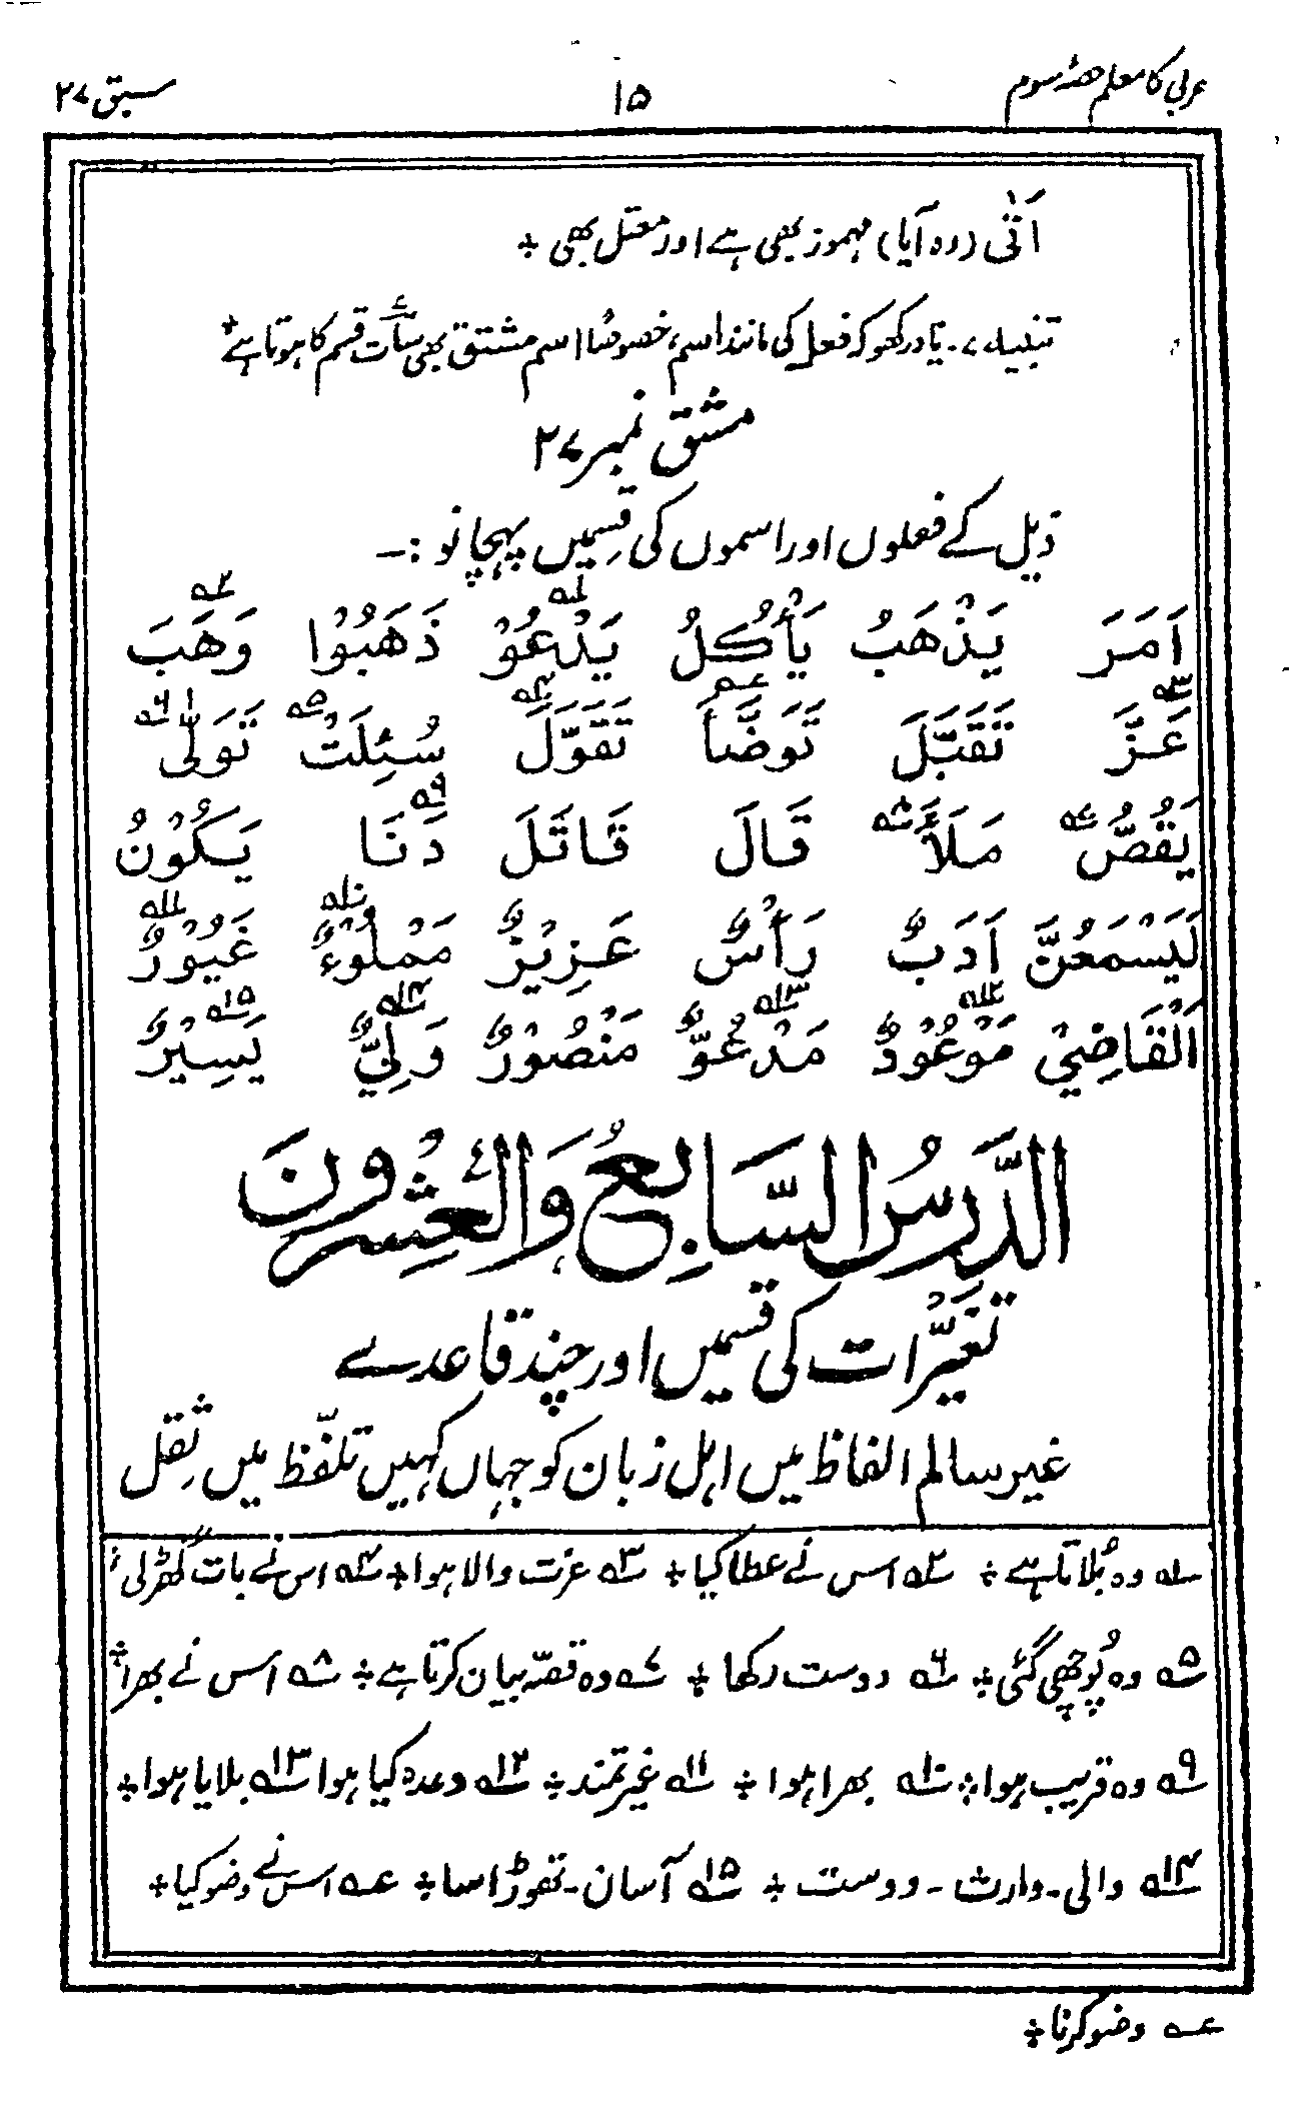 عربی کا معلم حصۂ سوم
۱۵
سبق ۲۷
اَتٰی (وہ آیا) مہموز بھی ہے اور معتل بھی ÷
تنبیہ ۷۔ یاد رکھو کہ فعل کی مانند اسم، خصوصًا اسم مشتق بھی سات قسم کا ہوتا ہے ÷
مشق نمبر ۲۷
ذیل کے فعلوں اور اسموں کی قِسمیں پہچانو :۔
اَمَرَ يَذْهَبُ يَأْكُلُ يَدْعُوْ ؂۱ ذَهَبُوْا وَهَبَ ؂۲
عَزَّ ؂۳ تَقَبَّلَ تَوَضَّأَ ؂ع تَقَوَّلَ ؂۴ سُئِلَتْ ؂۵ تَوَلّٰى ؂۶
يَقُصُّ ؂۷ مَلَأَ ؂۸ قَالَ قَاتَلَ دَنَا ؂۹ يَكُوْنُ
لَيَسْمَعُنَّ اَدَبٌ رَأْسٌ عَزِيْزٌ مَمْلُوْءٌ ؂۱۰ غَيُوْرٌ ؂۱۱
اَلْقَاضِيْ مَوْعُوْدٌ ؂۱۲ مَدْعُوٌّ ؂۱۳ مَنْصُوْرٌ وَلِيٌّ ؂۱۴ يَسِيْرٌ ؂۱۵
الدَّرْسُ السَّابِعُ وَالْعِشْرُوْنَ
تغیُّرات کی قسمیں اور چند قاعدے
غیر سالم الفاظ میں اہل زبان کو جہاں کہیں تلفّظ میں ثِقل
؂۱ وہ بُلاتا ہے ÷ ؂۲ اس نے عطا کیا ÷ ؂۳ عزت والا ہوا ÷ ؂۴ اس نے بات گھڑ لی ÷
؂۵ وہ پُوچھی گئی ÷ ؂۶ دوست رکھا ÷ ؂۷ وہ قصّہ بیان کرتا ہے ÷ ؂۸ اس نے بھرا ÷
؂۹ وہ قریب ہوا ÷ ؂۱۰ بھرا ہوا ÷ ؂۱۱ غیرتمند ÷ ؂۱۲ وعدہ کیا ہوا ؂۱۳ بلایا ہوا ÷
؂۱۴ والی۔ وارث۔ دوست ÷ ؂۱۵ آسان۔ تھوڑا سا ÷ ؂ع اس نے وضو کیا ÷
؂ع وضو کرنا ÷